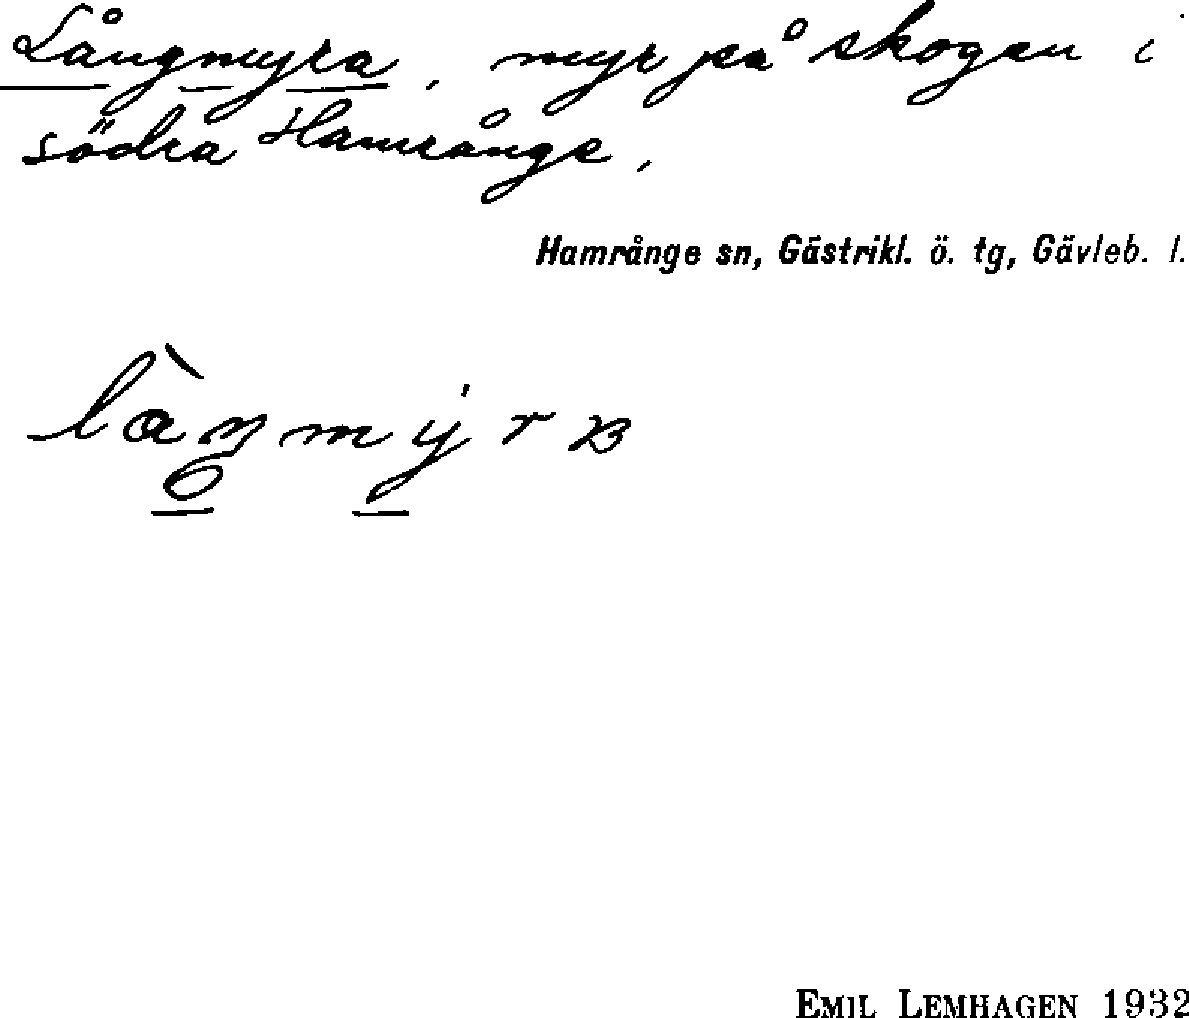 Långmyra, myr på skogen i
södra Hamrånge,
Hamrånge sn, Gästrikl. ö. tg, Gävleb. l.
EMIL LEMHAGEN 1932